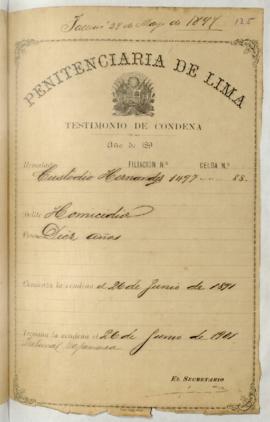 29 de Mayo de 1897
125
PENITENCIARIA DE LIMA
TESTIMONIO DE CONDENA
Año de 189
Rematado FILIACION N.º CELDA N.º
Custodio Hernandz 1497 88.
Delito Homicidio
Pena Diez años
Comienza la condena el 26 de Junio de 1891
Termina la condena el 26 de Junio de 1901
Tribunal Cajamarca
EL SECRETARIO